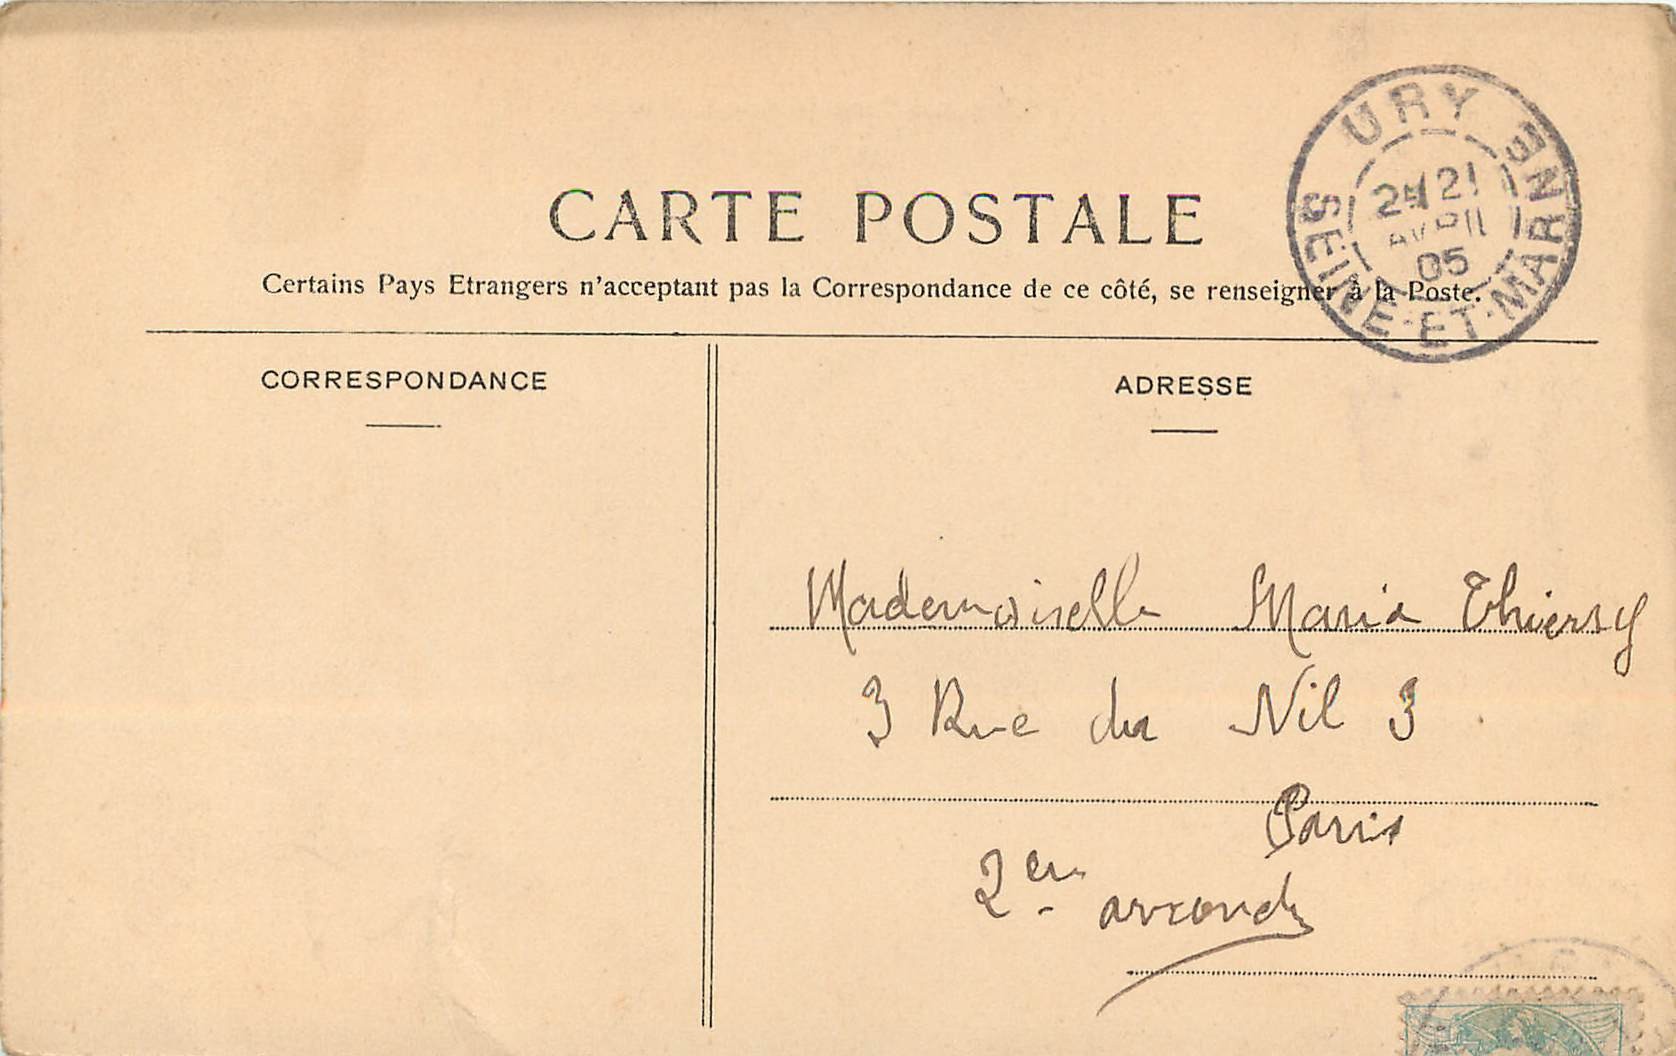 CARTE POSTALE
Certains Pays Etrangers n'acceptant pas la Correspondance de ce côté, se renseigner à la Poste.
URY
21
AVRIL
05
SEINE-ET-MARNE
CORRESPONDANCE
ADRESSE
Mademoiselle Maria Thierry
3 Rue du Nil 3
Paris
2em arrond